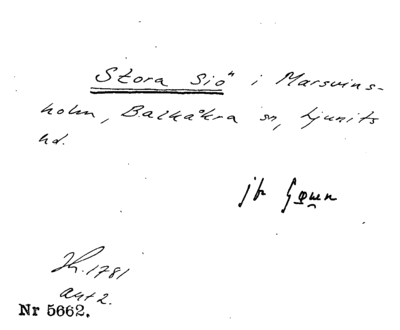 Stora Siö" i Marsvins-
holm, Balkåkra sn, Ljunits
hd.
jfr
1781
ant 2.
Nr 5662.